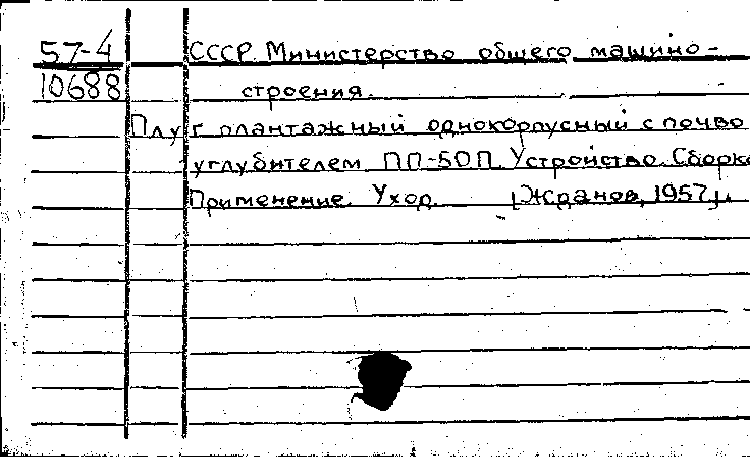 57-4 СССР. Министерство общего машино-
10688 строения.
Плуг плантажный однокорпусный с почво
углубителем ПП-50П. Устройство. Сборка
Применение. Уход. [Жданов, 1957].